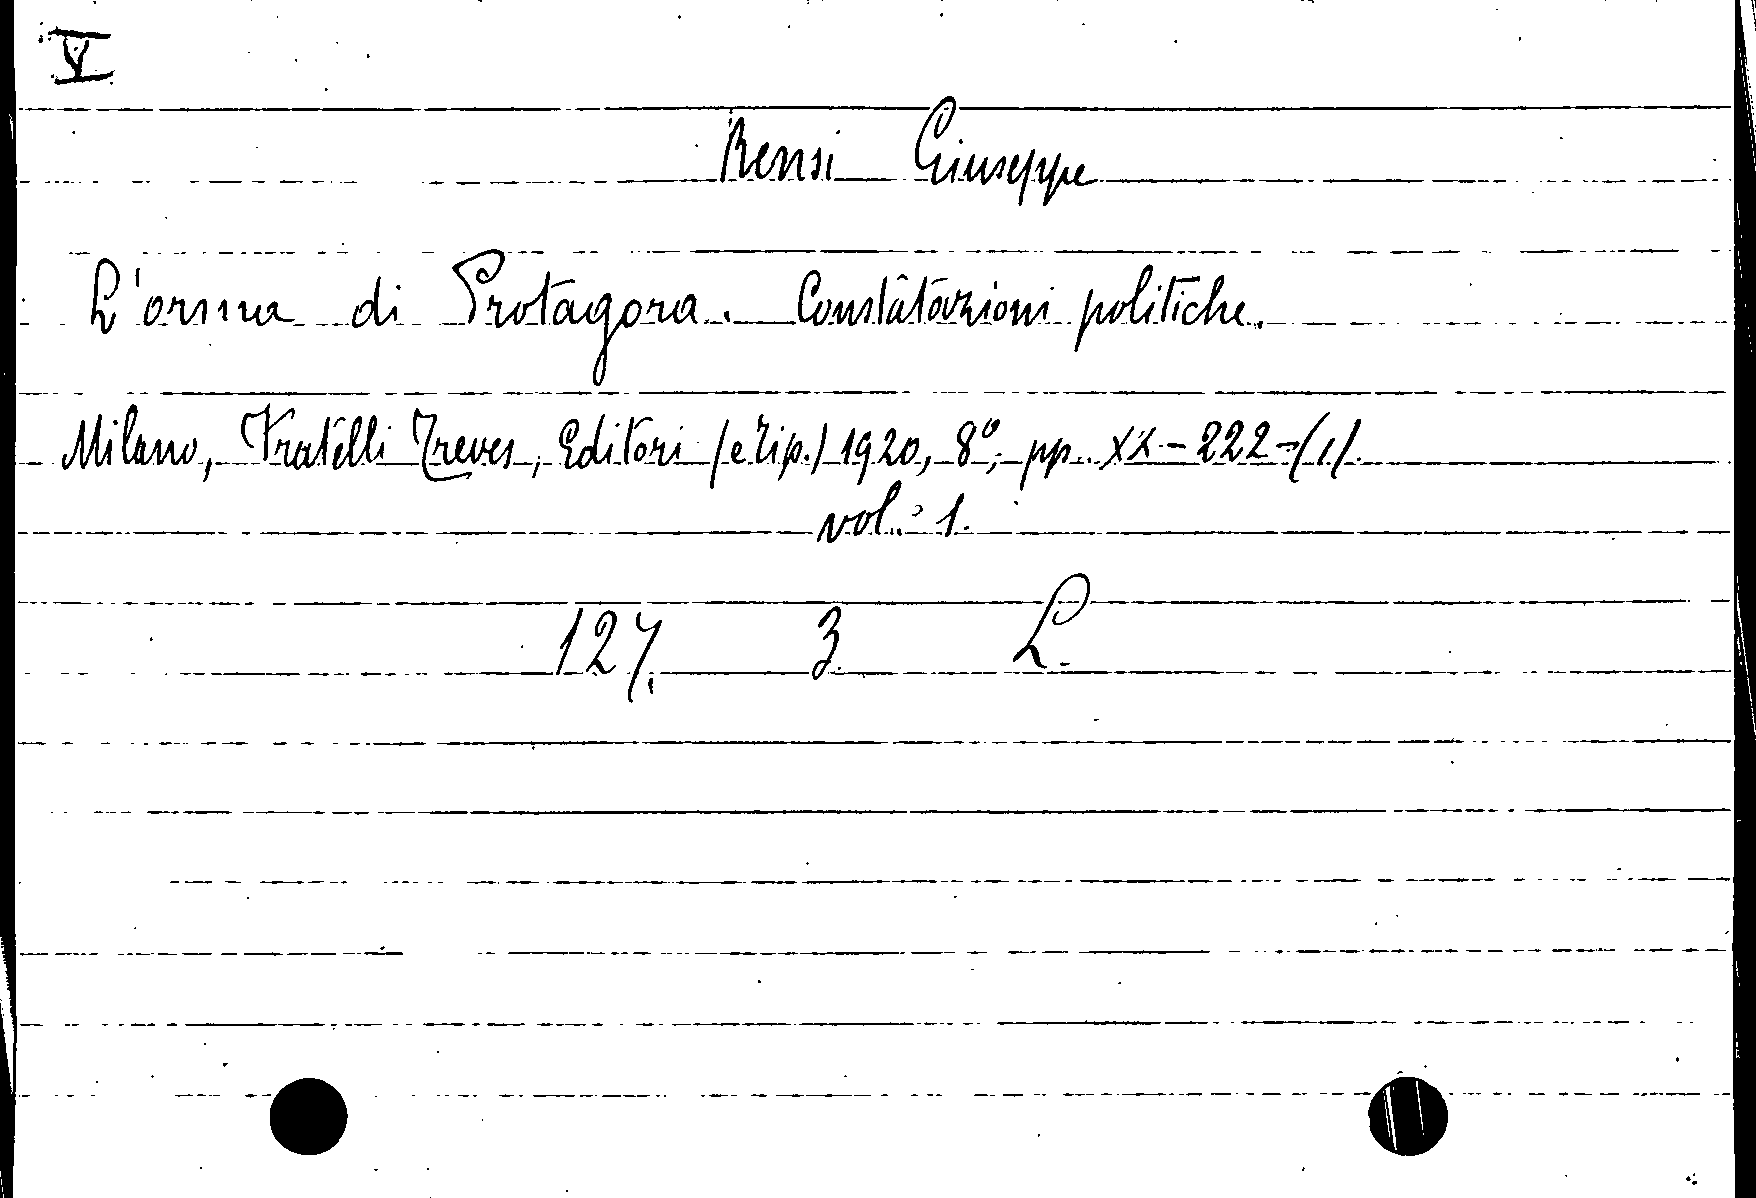 V
Rensi Giuseppe
L'orma di Protagora. Constatazioni politiche.
Milano, Fratelli Treves, Editori (e Tip.) 1920, 8º, pp. XX-222-(1).
vol.: 1.
127. 3. L.